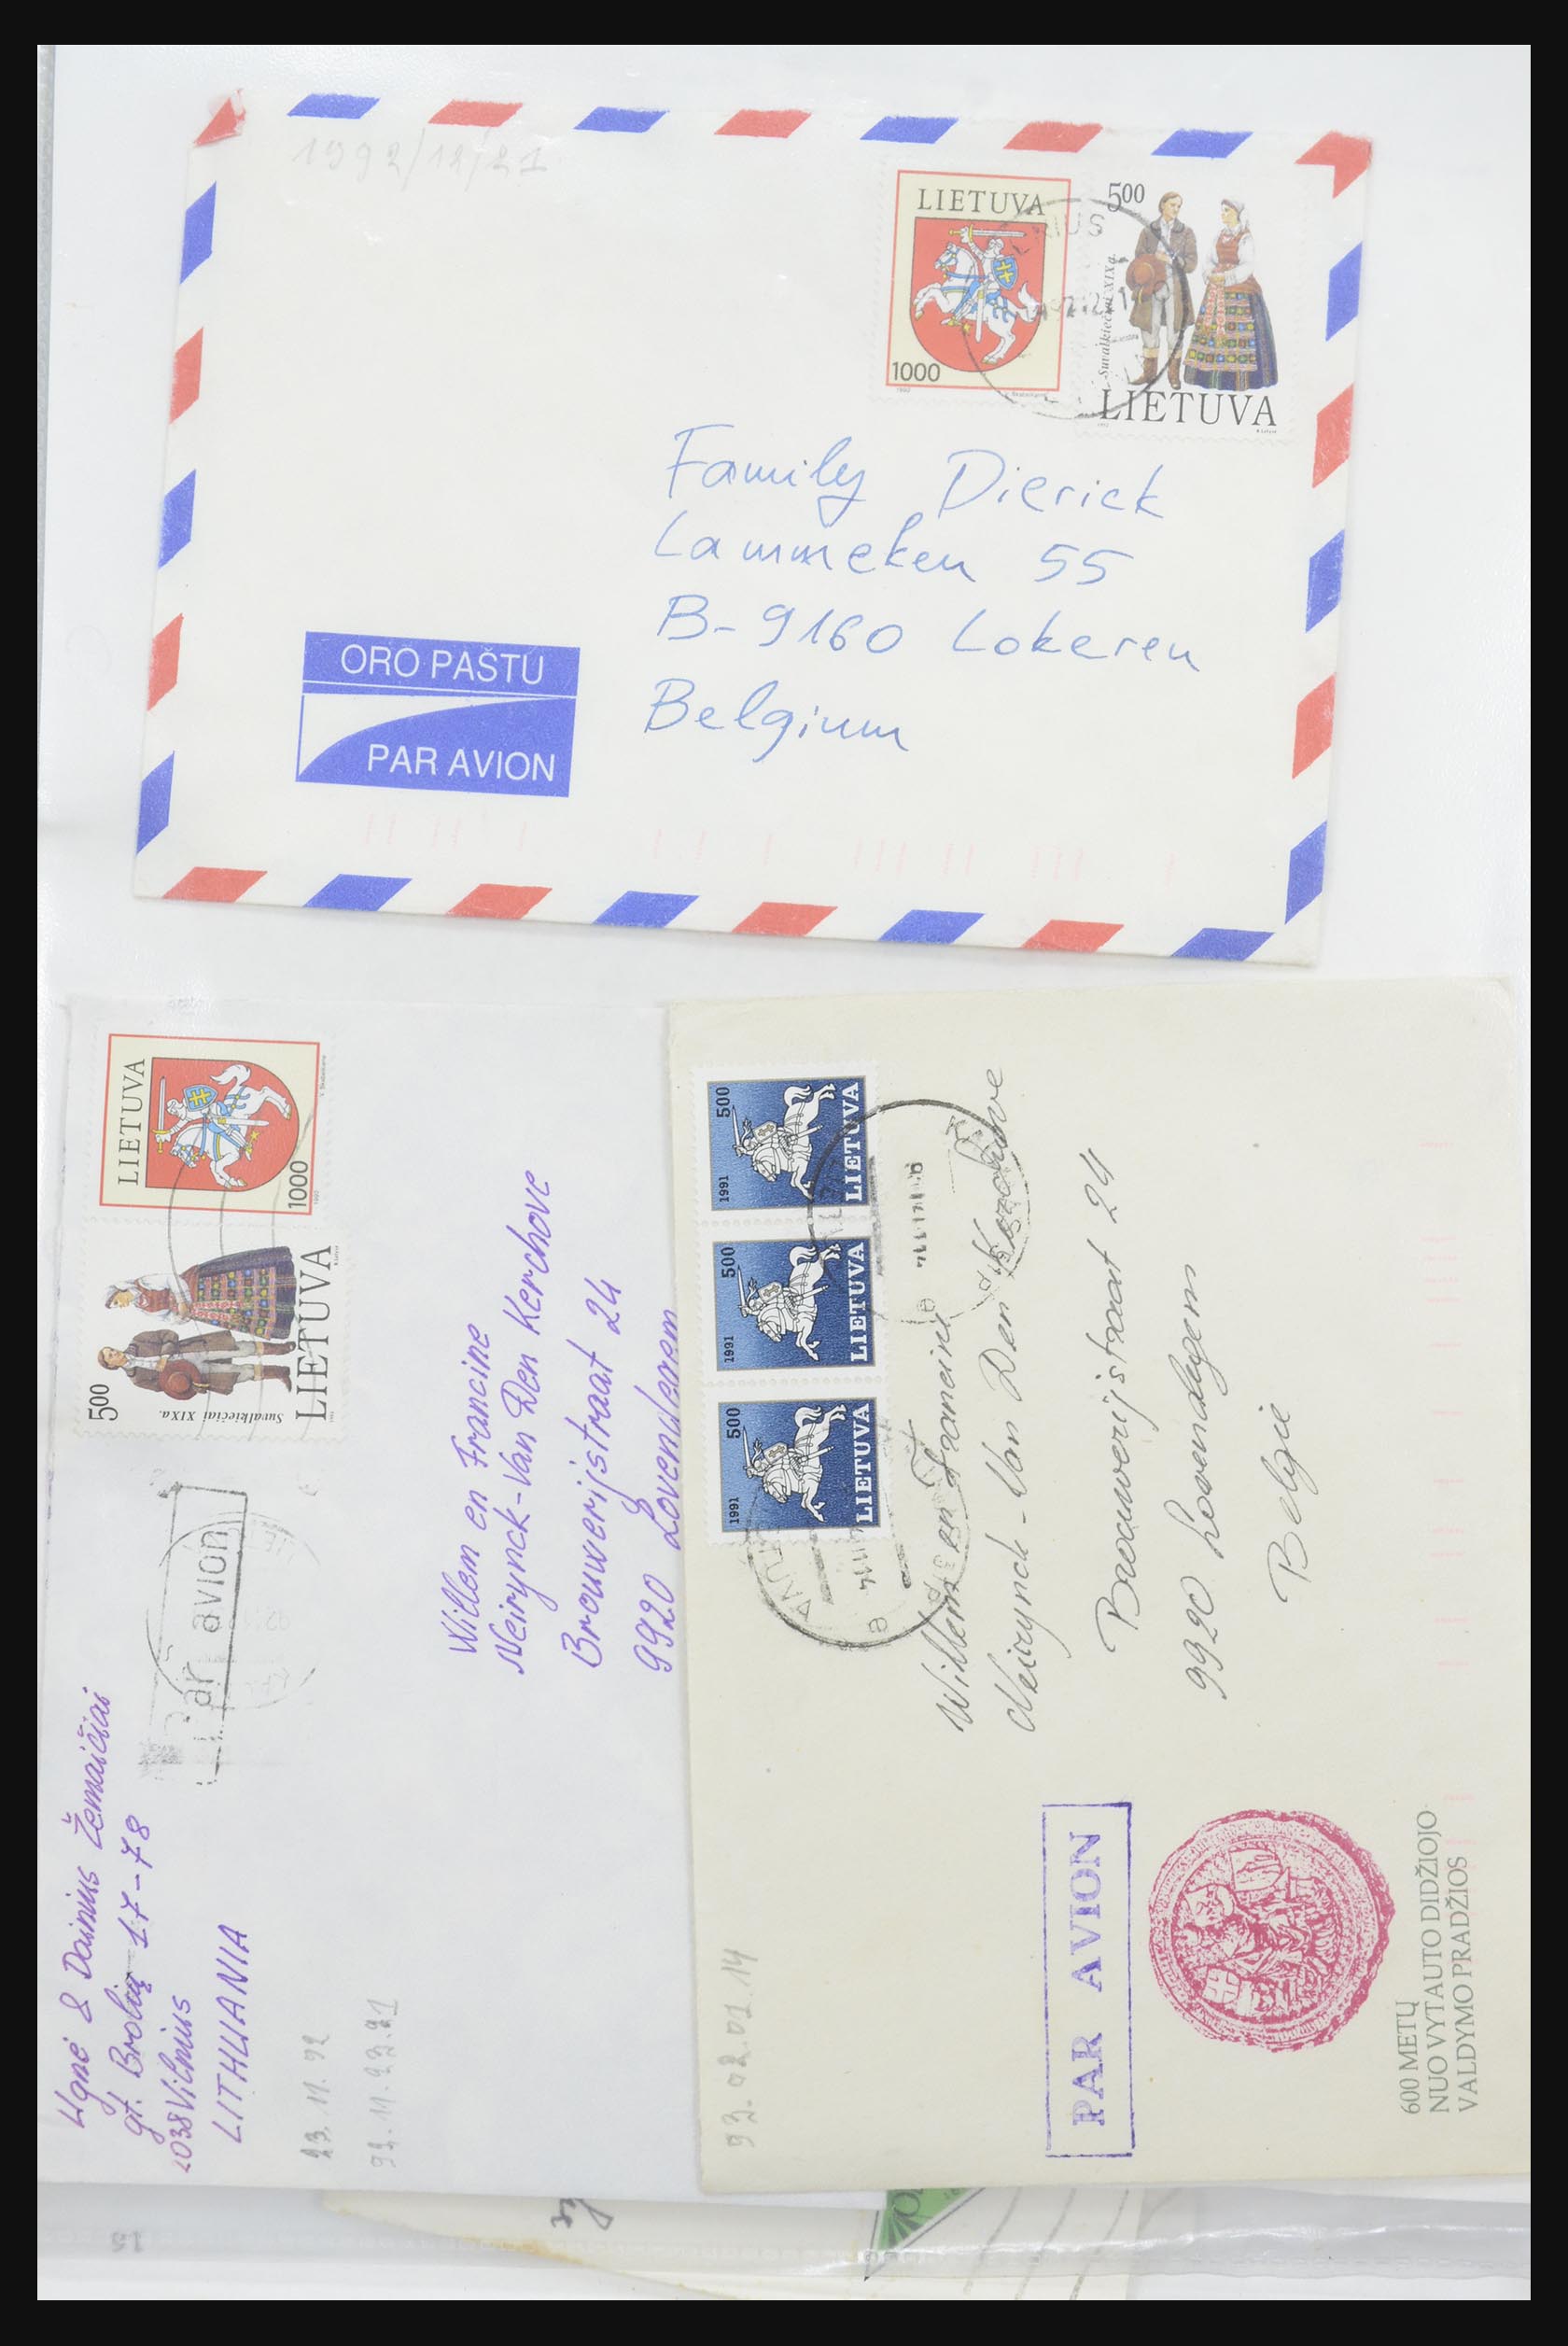 1992/12/21
LIETUVA
1000
500
Suvalkiečiai XIXa.
LIETUVA
Family Dierick
Lammeken 55
B-9160 Lokeren
Belgium
ORO PAŠTU
PAR AVION
LIETUVA
1000
500
Suvalkiečiai XIXa.
LIETUVA
Par avion
Ugnė & Dainius Žemaičiai
gt. Brolių 17-78
2038 Vilnius
LITHUANIA
23.11.92
Willem en Francine
Neirynck-Van Den Kerchove
Brouwerijstraat 24
9920 Lovendegem
1991
500
LIETUVA
1991
500
LIETUVA
1991
500
LIETUVA
Willem en Francine
Neirynck-Van Den Kerchove
Brouwerijstraat 24
9920 Lovendegem
Belgie
93.02.01.14
PAR AVION
600 METŲ
NUO VYTAUTO DIDŽIOJO
VALDYMO PRADŽIOS